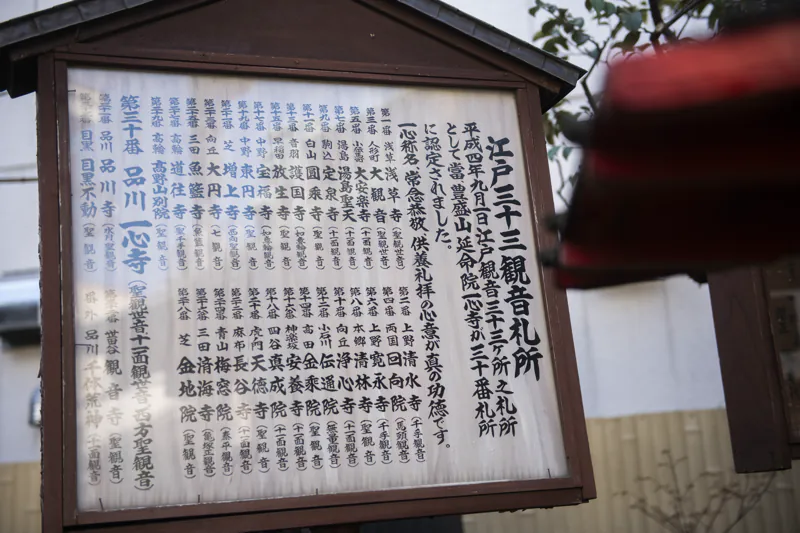 江戸三十三観音札所
平成四年九月一日江戸観音三十三ヶ所之札所
として當 豊盛山 延命院一心寺が三十番札所
に認定されました。
一心称名 常念恭敬、供養礼拝の心意が真の功徳です。
第一番 浅草 浅草寺(聖観世音) 第二番 上野 清水寺(千手観音)
第三番 人形町 大観音(聖観音) 第四番 両国 回向院(馬頭観音)
第五番 大安楽寺(十一面観音) 第六番 上野 寛永寺(千手観音)
第七番 湯島 湯島聖天(十一面観音) 第八番 本郷 清林寺(聖観音)
第九番 駒込 定泉寺(十一面観音) 第十番 向丘 浄心寺(十一面観音)
第十一番 白山 圓乗寺(聖観音) 第十二番 小石川 伝通院(無量聖観音)
第十三番 音羽 護国寺(如意輪観音) 第十四番 高田 金乗院(聖観音)
第十五番 早稲田 放生寺(聖観音) 第十六番 神楽坂 安養寺(十一面観音)
第十七番 中野 宝福寺(如意輪観音) 第十八番 四谷 真成院(十一面観音)
第十九番 中野 東円寺(聖観音) 第二十番 虎ノ門 天徳寺(聖観音)
第二十一番 芝 増上寺(西向聖観音) 第二十二番 麻布 長谷寺(十一面観音)
第二十三番 向丘 大円寺(七観音) 第二十四番 青山 梅窓院(泰平観音)
第二十五番 三田 魚籃寺(魚籃観音) 第二十六番 三田 済海寺(亀塚正観音)
第二十七番 高輪 道往寺(聖千手観音) 第二十八番 芝 金地院(聖観音)
第二十九番 高輪 高野山別院(聖観音)
第三十番 品川 一心寺(聖観世音十一面観世音西方聖観音)
第三十一番 品川 品川寺(水月聖観音) 第三十二番 世田谷 観音寺(聖観音)
第三十三番 目黒 目黒不動(聖観音) 番外 品川 千体荒神(十一面観音)